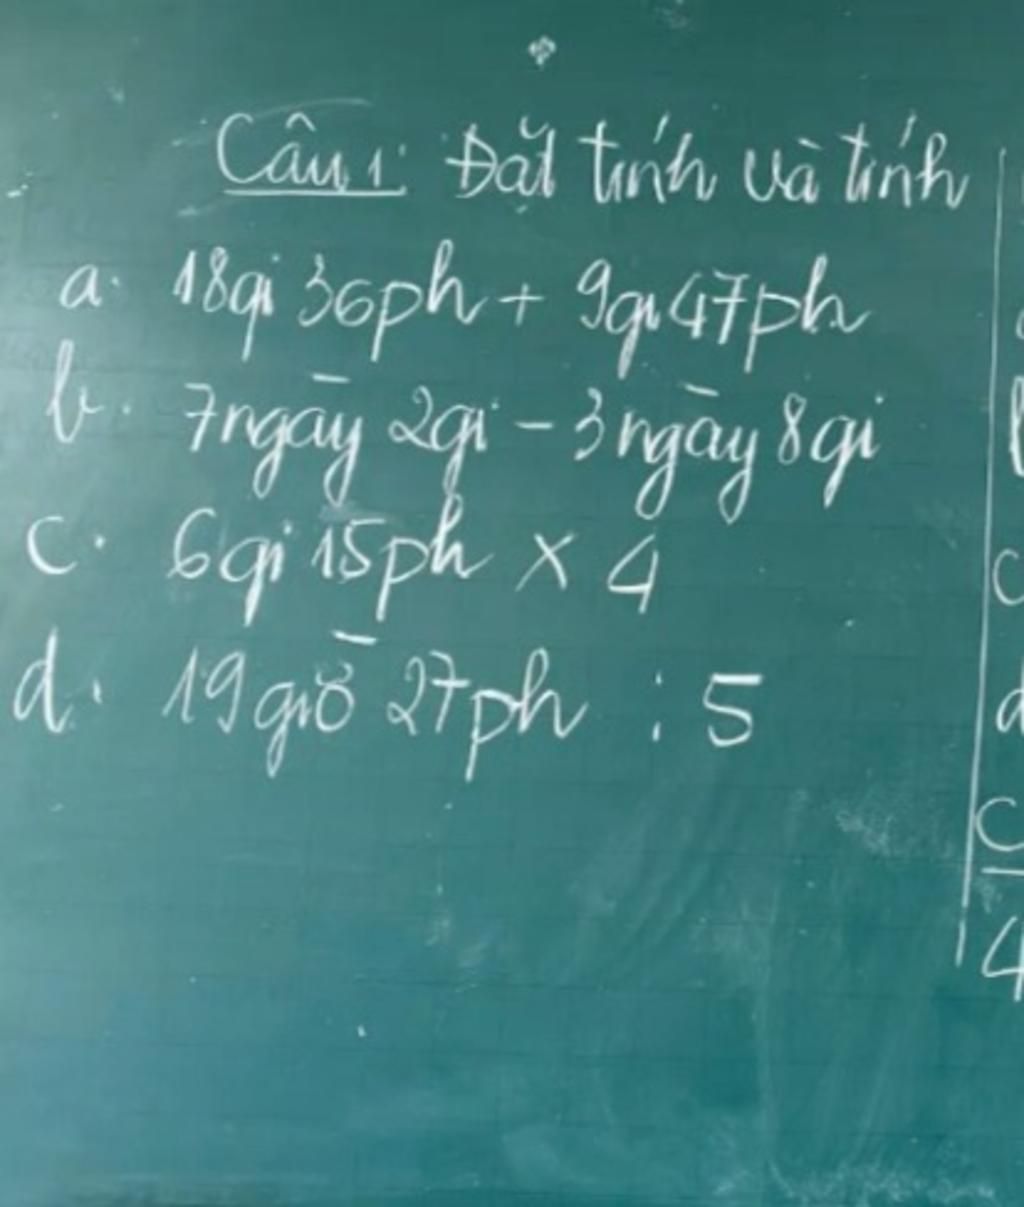 Câu 1: Đặt tính và tính
a. 18gi 36ph + 9gi 47ph
b. 7ngày 2gi - 3 ngày 8gi
c. 6gi 15ph x 4
d. 19giờ 27ph : 5